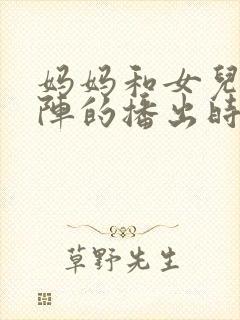 妈妈和女兒
陣的播出時
草野先生